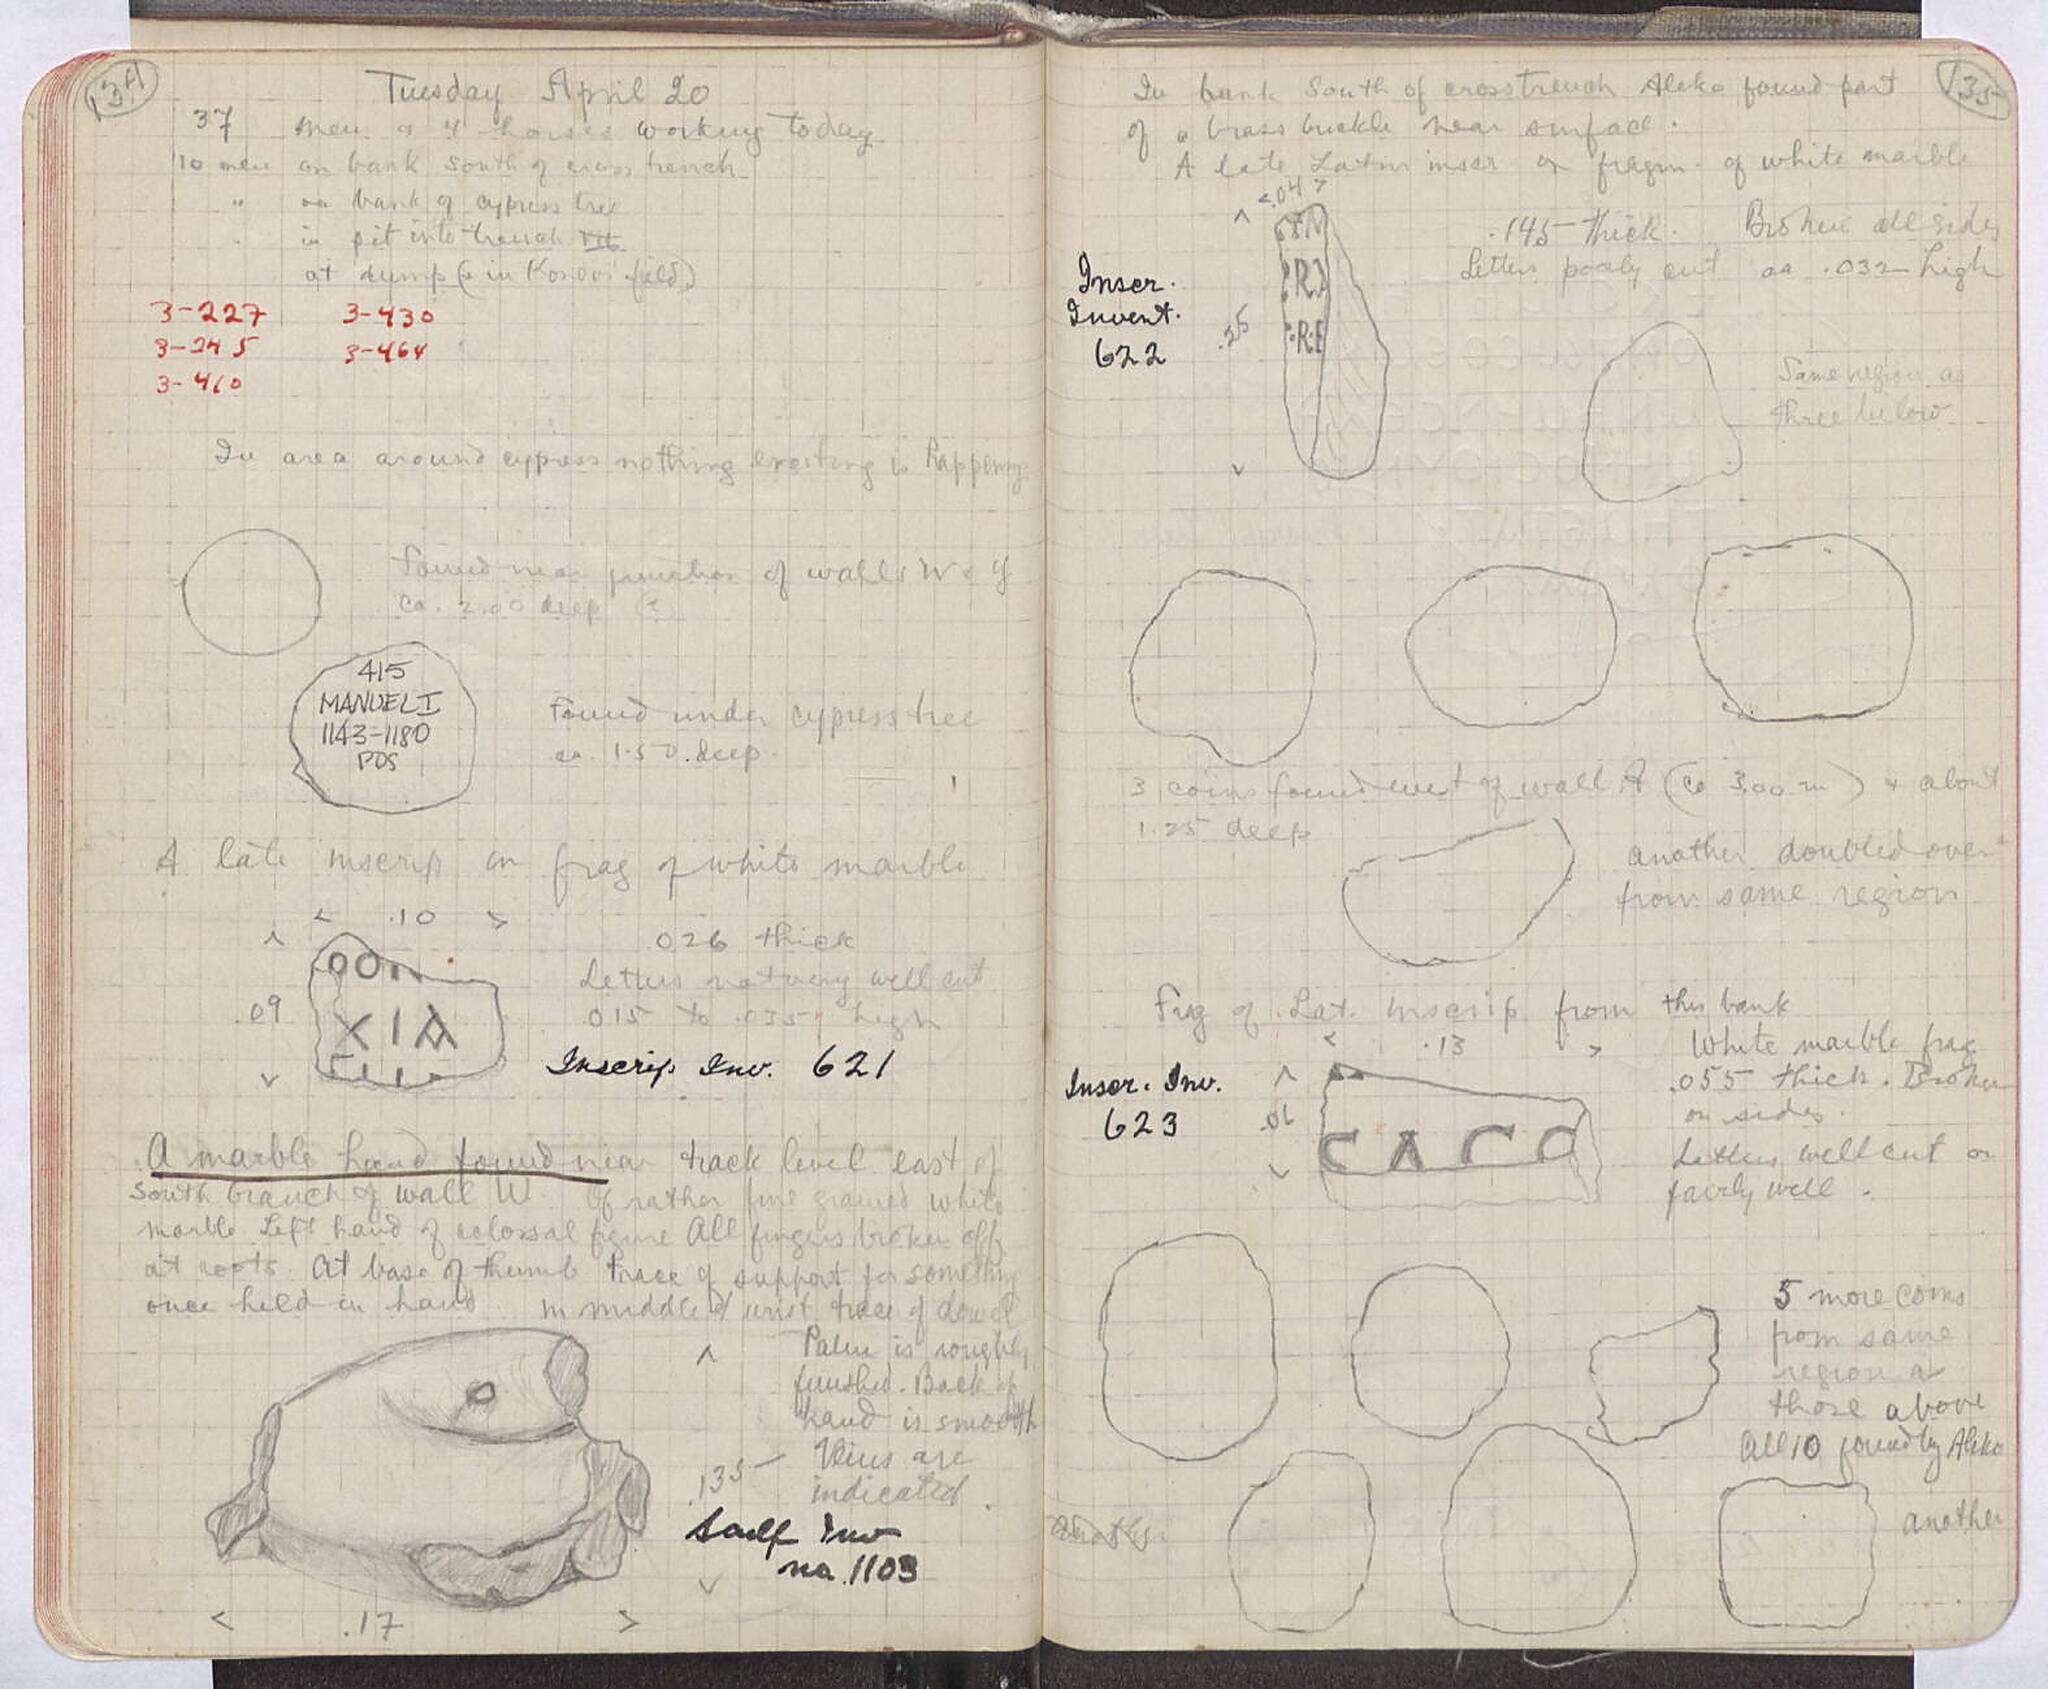 134
Tuesday April 20
37 men & 4 horses working today
10 men on bank south of cross trench
" on bank of cypress tree
" in pit into trench
at dump (2 in Kosovi field)
3-227 3-430
3-245 3-464
3-410
In area around cypress nothing exciting is happening
Found near junction of walls W & Y
ca. 2.00 deep (?
415
MANUEL I
1143-1180
PDS
Found under cypress tree
ca. 1.50 deep.
A late inscrip on frag of white marble
< .10 >
.026 thick
OON
Letters not very well cut
.09
XIA
.015 to .035 high
Inscrip. Inv. 621
A marble hand found near track level east of
South branch of wall W. Of rather fine grained white
marble. Left hand of colossal figure All fingers broken off
at roots. At base of thumb trace of support for something
once held in hand. In middle of wrist trace of dowel
Palm is roughly
finished. Back of
hand is smooth
Veins are
indicated.
.135
Sculp Inv
no. 1103
< .17 >
135
In bank South of cross trench Aleko found part
of a brass buckle near surface.
A late Latin inscr on fragm. of white marble
<.04>
.145 thick. Broken all sides
Letters poorly cut ca .032 high
Inscr.
Invent.
622
.25
:R:E
Same region as
three below
3 coins found west of wall A (ca 3.00 m) & about
1.25 deep
another doubled over
from same region
Frag of Lat. inscrip from this bank
< .13 >
White marble frag
.055 thick. Broken
on sides.
Letters well cut or
fairly well.
Inscr. Inv.
623
.06
CACC
5 more coins
from same
region as
those above
All 10 found by Aleko
another
another